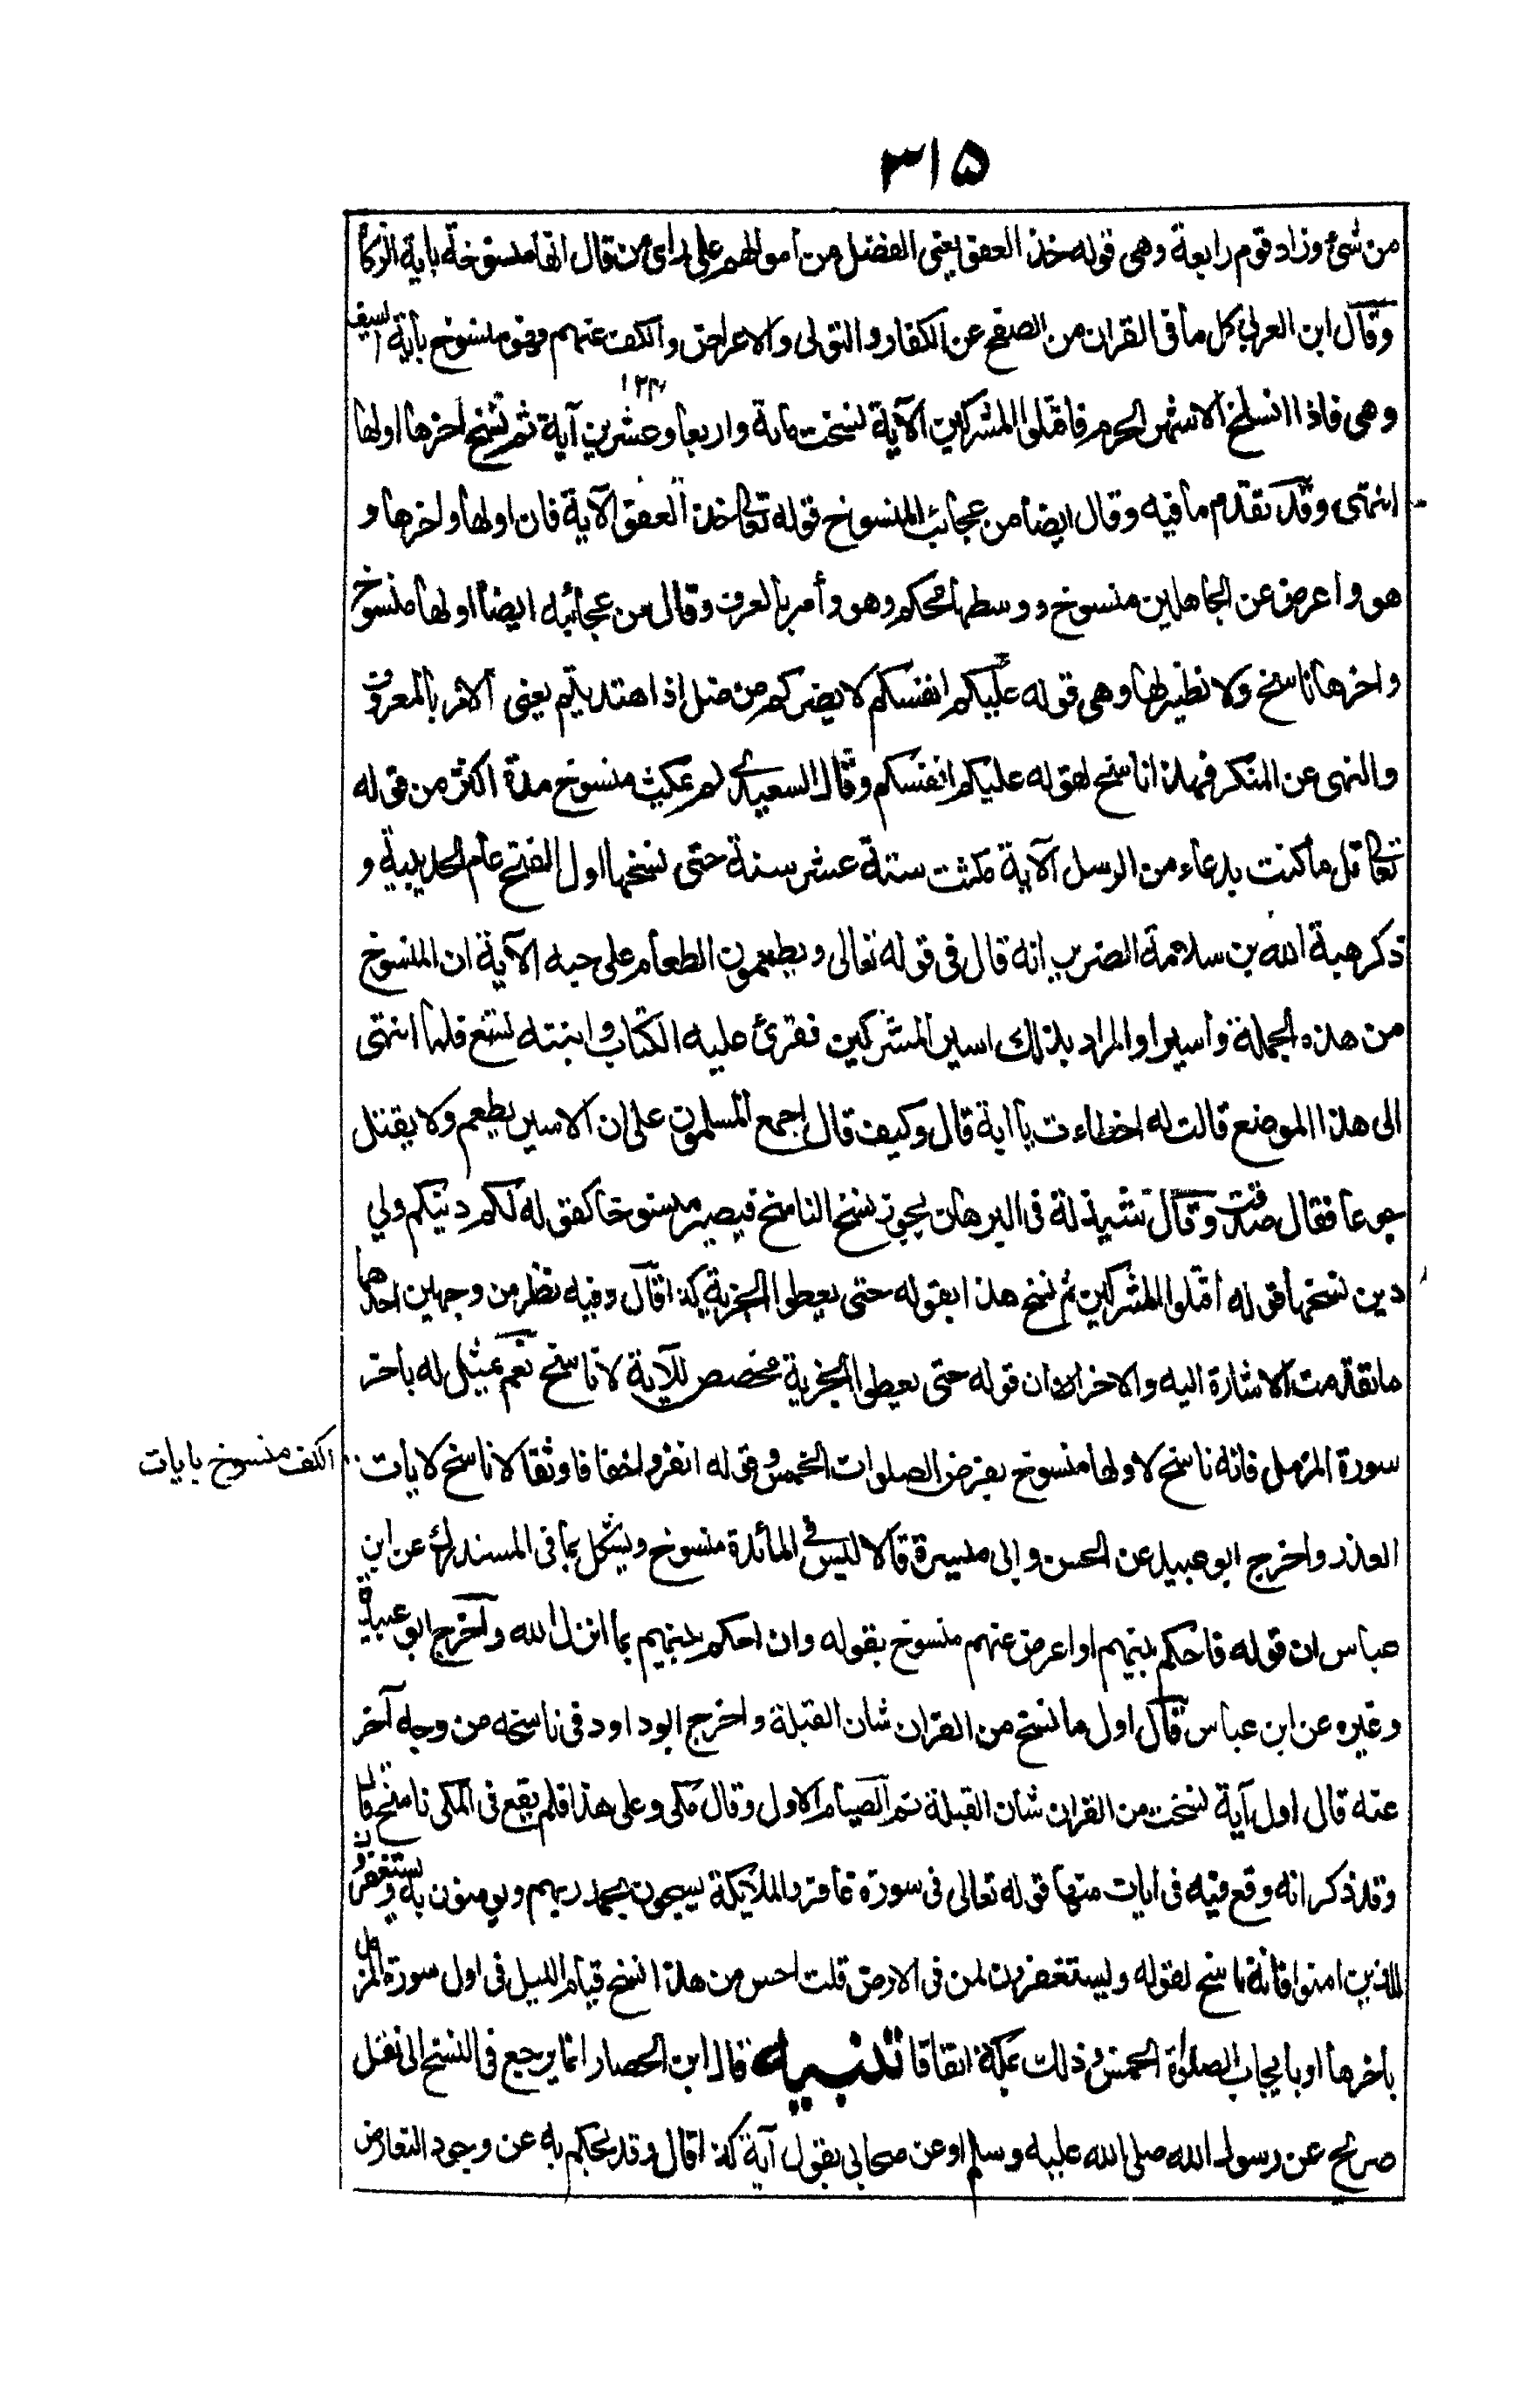 ٣١٥
من شئ وزاد قوم رابعة وهى قوله خذ العفو يعنى الفضل من اموالهم على راى من قال انها منسوخة باية الزكاة
وقال ابن العربى كل ما فى القران من الصفح عن الكفار والتولى والاعراض والكف عنهم فهو منسوخ باية السيف
وهى فاذا انسلخ الاشهر الحرم فاقتلوا المشركين الآية نسخت مائة واربعا وعشرين آية ثم نسخ اخرها اولها
١٢٤
انتهى وقد تقدم ما فيه وقال ايضا من عجائب المنسوخ قوله تعالى خذ العفو الآية فان اولها واخرها و
هو واعرض عن الجاهلين منسوخ ووسطها محكم وهو وأمر بالعرف وقال من عجائبه ايضا اولها منسوخ
واخرها ناسخ ولا نظير لها وهى قوله عليكم انفسكم لا يضركم من ضل اذا اهتديتم يعنى الامر بالمعروف
والنهى عن المنكر فهذا ناسخ لقوله عليكم انفسكم وقال السعيدى لم يمكث منسوخ مدة اكثر من قوله
تعالى قل ما كنت بدعاء من الرسل الآية مكثت ستة عشر سنة حتى نسخها اول الفتح عام الحديبية و
ذكر هبة الله بن سلامة الضرير انه قال فى قوله تعالى ويطعمون الطعام على حبه الآية ان المنسوخ
من هذه الجملة وأسيرا والمراد بذلك اسير المشركين فقرئ عليه الكتاب وابنته تسمع فلما انتهى
الى هذا الموضع قالت له اخطاءت يا ابة قال وكيف قال اجمع المسلمون على ان الاسير يطعم ولا يقتل
جوعا فقال صدقت وقال شيذلة فى البرهان يجوز نسخ الناسخ فيصير منسوخا كقوله لكم دينكم ولي
دين نسخها قوله اقتلوا المشركين ثم نسخ هذا بقوله حتى يعطوا الجزية كذا قال وفيه نظر من وجهين احدهما
ما تقدمت الاشارة اليه والاخر ان قوله حتى يعطوا الجزية مخصص للآية لا ناسخ نعم يمثل له باخر
سورة المزمل فانه ناسخ لاولها منسوخ بفرض الصلوات الخمس وقوله انفروا خفافا وثقالا ناسخ لايات
الكف منسوخ بايات
العذر واخرج ابو عبيد عن الحسن وابى ميسرة قالا ليس فى المائدة منسوخ ويشكل بما فى المستدرك عن ابن
عباس ان قوله فاحكم بينهم او اعرض عنهم منسوخ بقوله وان احكم بينهم بما انزل الله وآخرج ابو عبيد
وغيره عن ابن عباس قال اول ما نسخ من القران شان القبلة واخرج ابو داود فى ناسخه من وجه آخر
عنه قال اول آية نسخت من القران شان القبلة ثم الصيام الاول وقال مكى وعلى هذا فلم يقع فى المكى ناسخ قال
وقد ذكر انه وقع فيه فى ايات منها قوله تعالى فى سورة غافر والملايكة يسبحون بحمد ربهم ويومنون به ويستغفرون
للذين امنوا فانه ناسخ لقوله ويستغفرون لمن فى الارض قلت احسن من هذا نسخ قيام الليل فى اول سورة المزمل
باخرها او بايجاب الصلواة الخمس وذلك بمكة اتفاقا تنبيه قال ابن الحصار انما يرجع فى النسخ الى نقل
صريح عن رسول الله صلى الله عليه وسلم او عن صحابى بقول آية كذا قال وقد يحكم به عن وجود التعارض